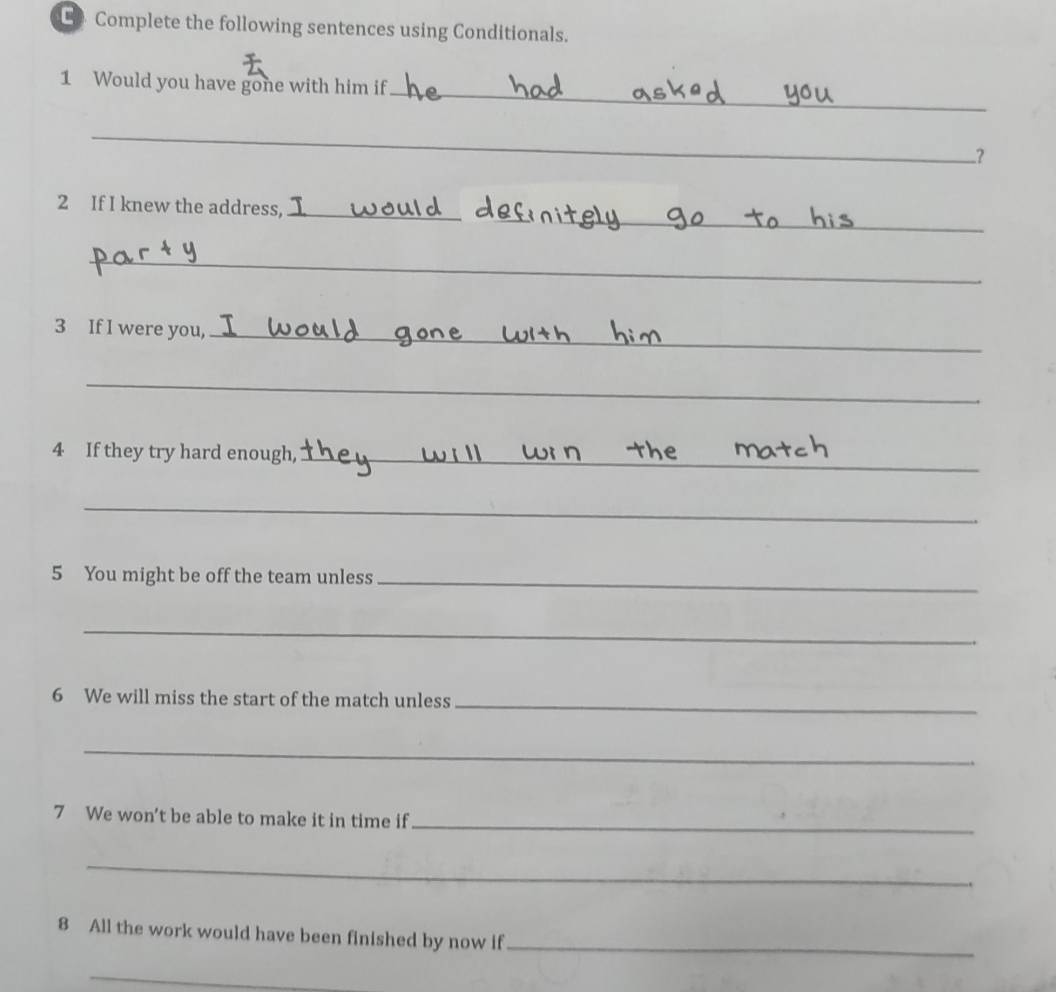 C Complete the following sentences using Conditionals.
去
1 Would you have gone with him if he had asked you
?
2 If I knew the address, I would definitely go to his
party
3 If I were you, I would gone with him
.
4 If they try hard enough, they will win the match
.
5 You might be off the team unless
.
6 We will miss the start of the match unless
.
7 We won't be able to make it in time if
.
8 All the work would have been finished by now if